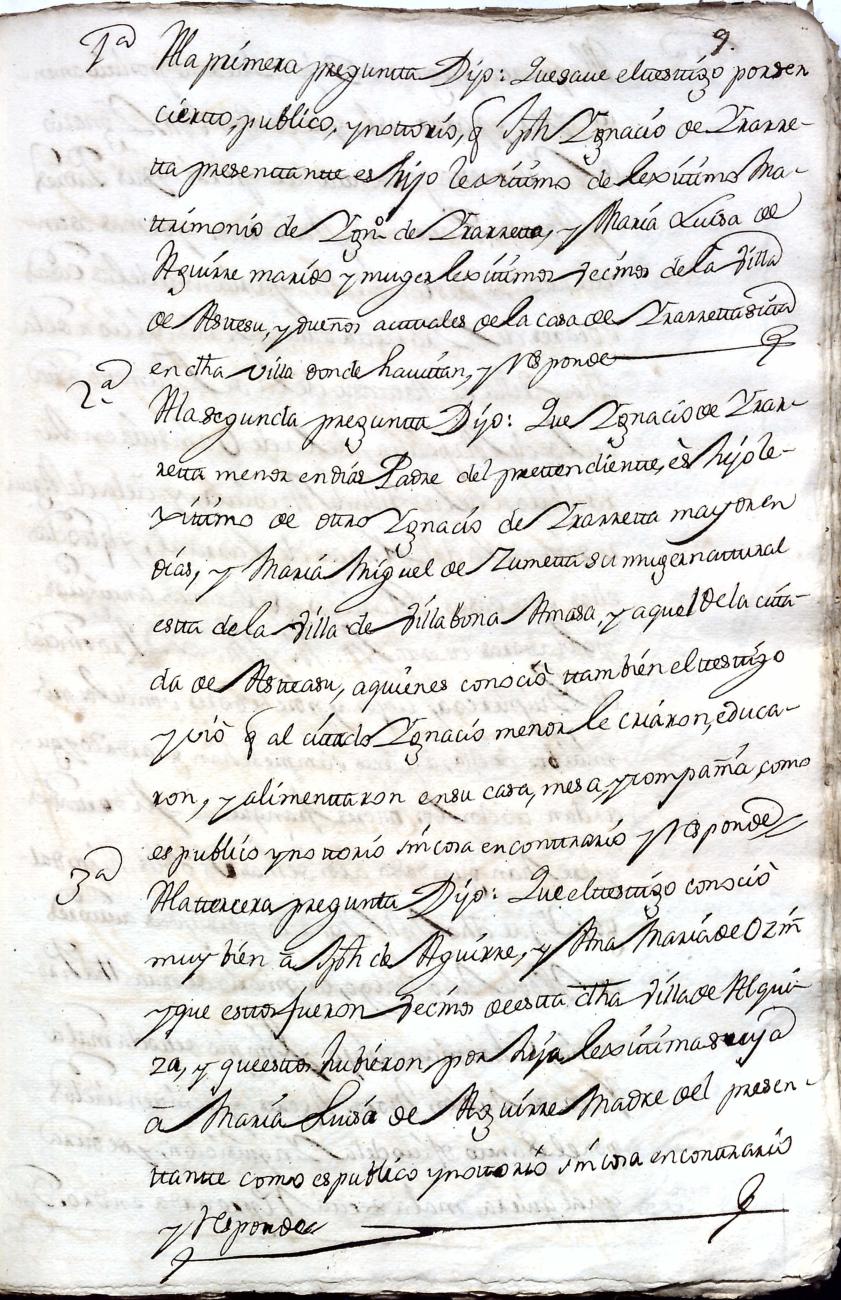 9.
1ª Ala primera preguntta Dijo: Que save el testtigo por ser
ciertto, publico, y nottorio, q Jph Ygnacio de Yrarre-
tta presenttantte es hijo lexittimo de lexittimo Ma-
ttrimonio de Ygnº de Yrarretta, y Maria Luisa de
Aguirre marido y muger lexittimos vecinos de la Villa
de Astteasu, y dueños acttuales de la casa de Yrarretta sitta
en dha villa donde havittan, y responde
2ª Ala segunda preguntta Dijo: Que Ygnacio de Yrar-
retta menor en dias Padre del prettendientte, es hijo le-
xittimo de ottro Ygnacio de Yrarretta mayor en
dias, y Maria Miguel de Zumetta su muger natural
estta de la Villa de Villabona Amasa, y aquel de la citta-
da de Astteasu, aquienes conociò ttambién el testtigo
y viò q al cittado Ygnacio menor le criaron, educa-
ron, y alimenttaron en su casa, mesa, y compañia, como
es publico y nottorio sin cosa en conttrario y responde
3ª Ala ttercera preguntta Dijo: Que el testtigo conociò
muy bien a Jph de Aguirre, y Ana Maria de Ozin
y que esttos fueron vecinos de estta dha Villa de Alqui-
za, y que esttos hubieron por hija lexittima suya
a Maria Luisa de Aguirre Madre del presen-
ttantte como es publico y nottorio sin cosa en conttrario
y responde